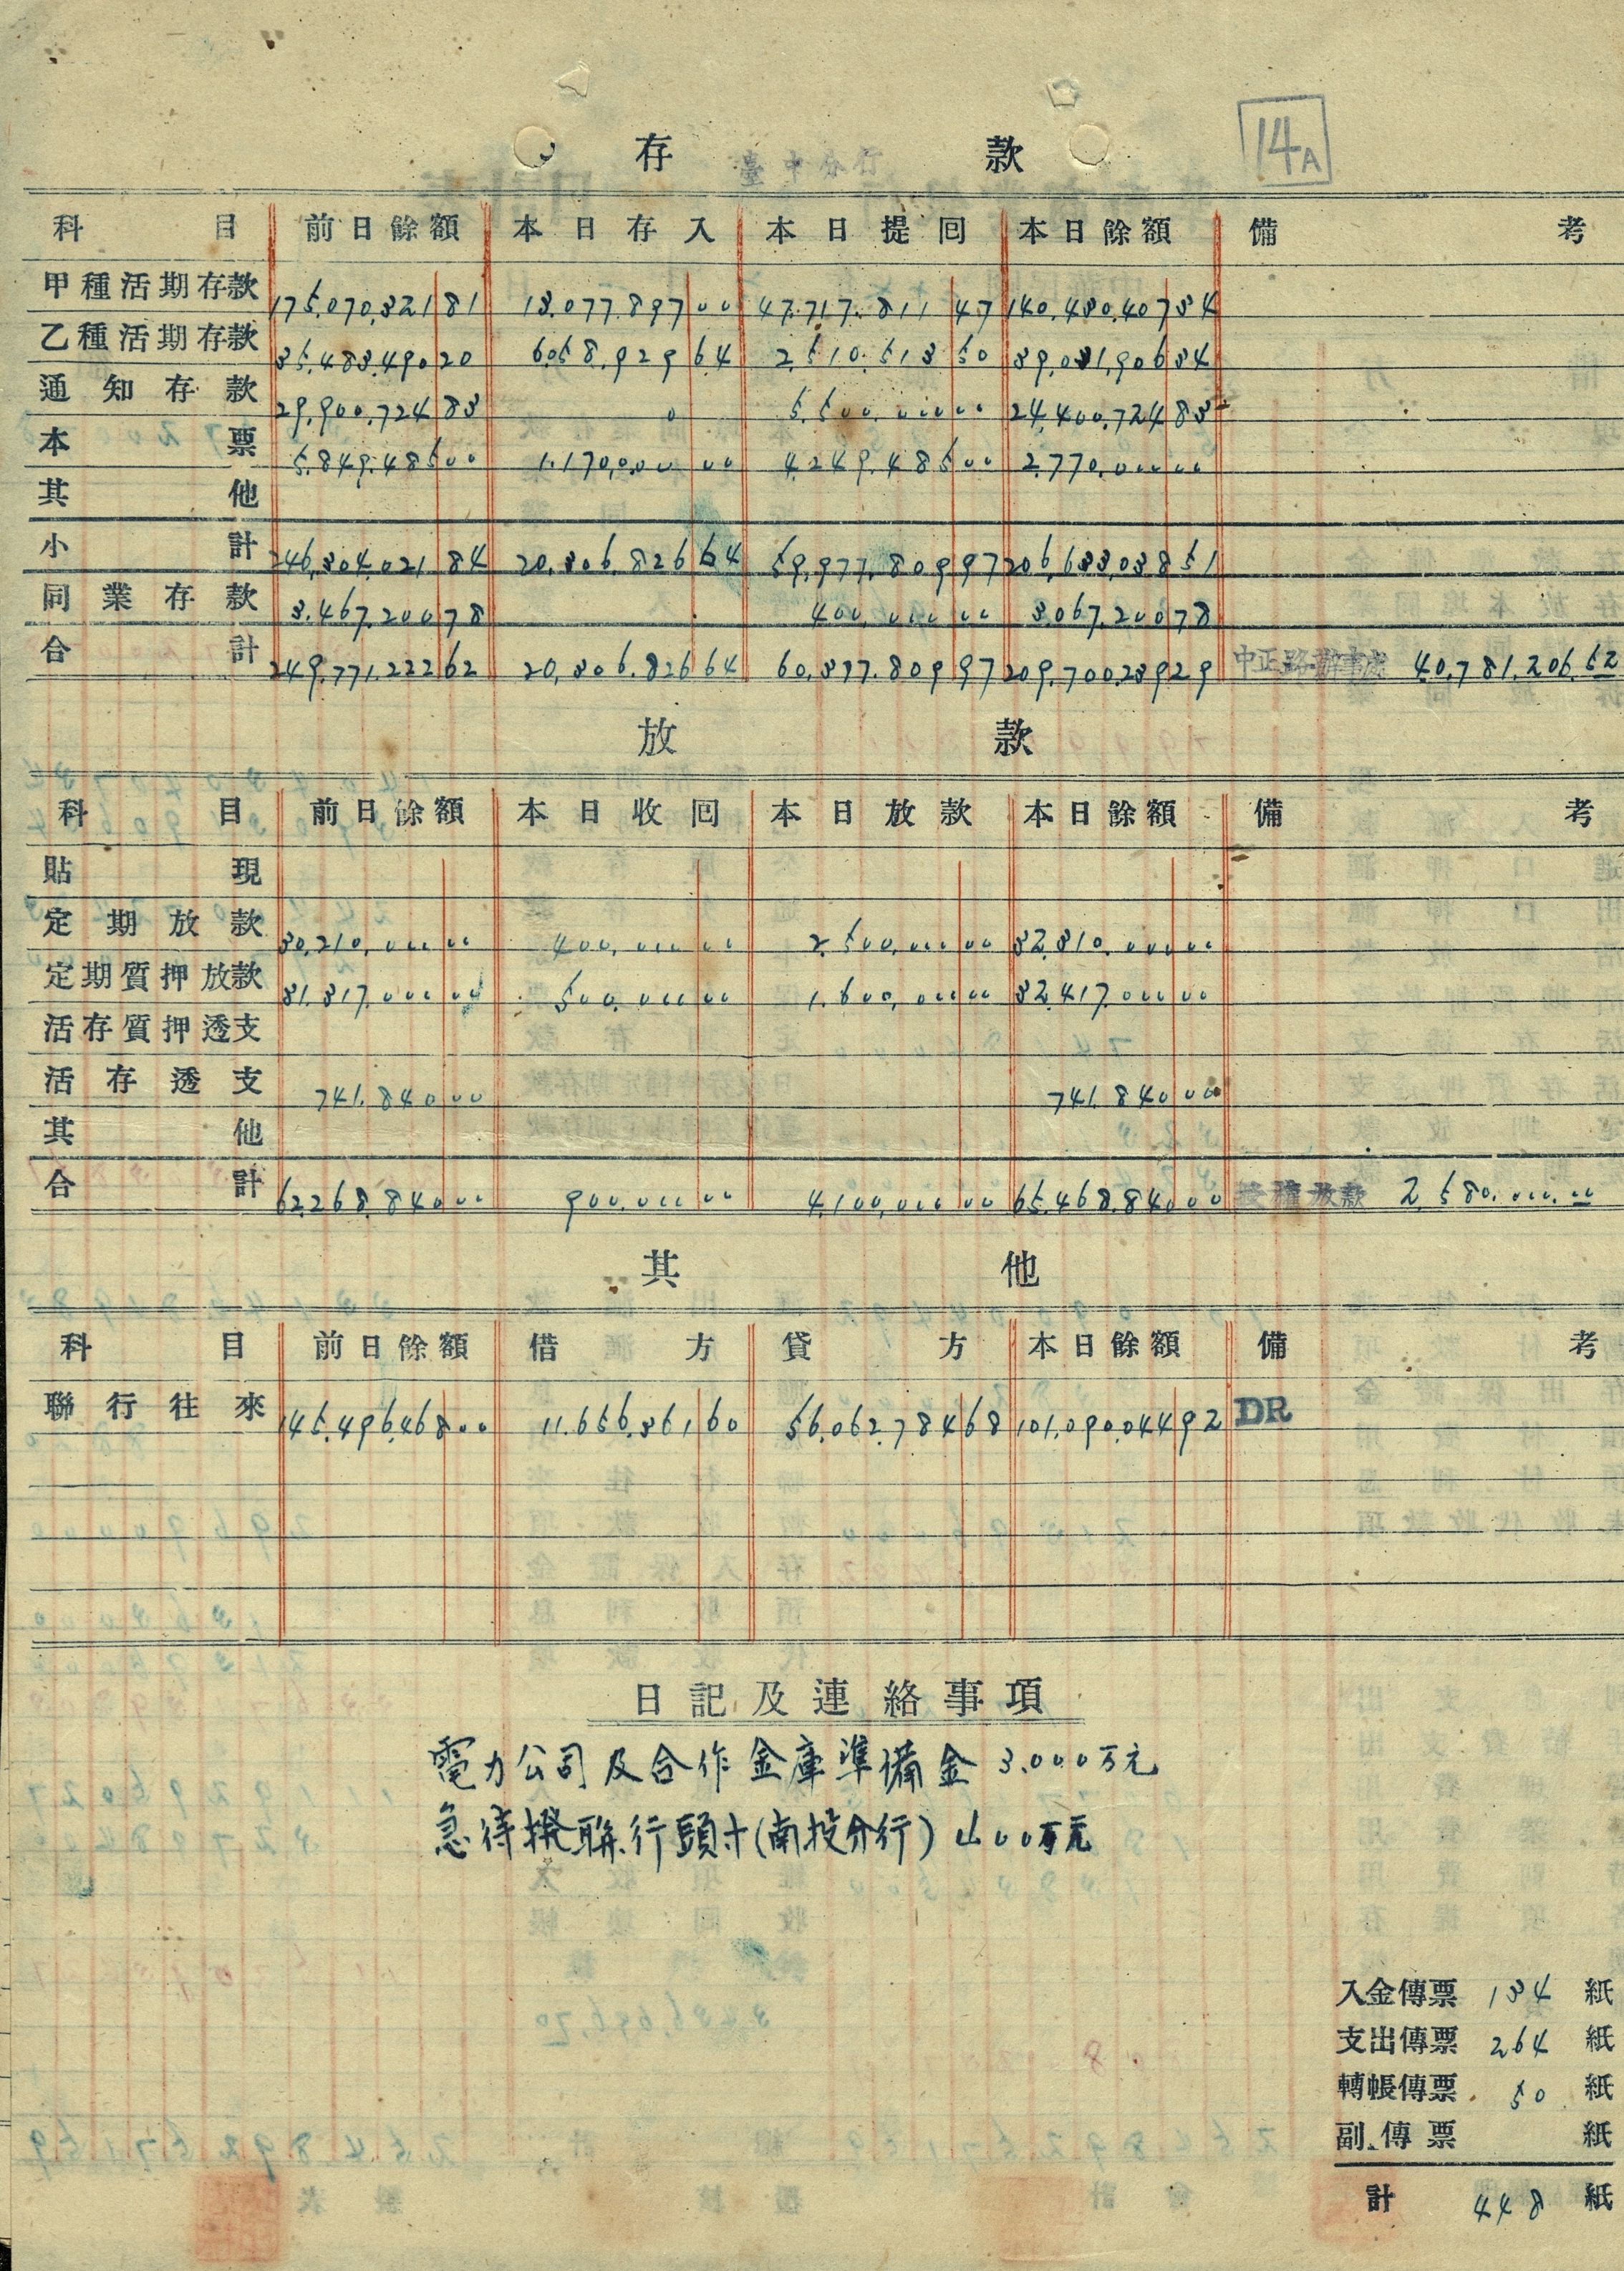 14A
存款
臺中分行
科目 前日餘額 本日存入 本日提回 本日餘額 備考
甲種活期存款 175,070,321 81 13,077,897 00 47,717,811 47 140,430,407 34
乙種活期存款 35,483,490 20 6,058,929 64 2,510,513 50 39,031,906 34
通知存款 29,900,724 83 0 5,500,000 00 24,400,724 83
本票 5,849,485 00 1,170,000 00 4,249,485 00 2,770,000 00
其他
小計 246,304,021 84 20,306,826 64 59,977,809 97 206,633,038 51
同業存款 3,467,200 78 400,000 00 3,067,200 78
合計 249,771,222 62 20,306,826 64 60,377,809 97 209,700,239 29 中正路辦事處 40,781,206.52
放款
科目 前日餘額 本日收回 本日放款 本日餘額 備考
貼現
定期放款 30,210,000 00 400,000 00 2,500,000 00 32,310,000 00
定期質押放款 31,317,000 00 500,000 00 1,600,000 00 32,417,000 00
活存質押透支
活存透支 741,840 00 741,840 00
其他
合計 62,268,840 00 900,000 00 4,100,000 00 65,468,840 00 放款 2,580,000.00
其他
科目 前日餘額 借方 貸方 本日餘額 備考
聯行往來 145,496,468 00 11,656,361 60 56,062,784 68 101,090,044 92 DR
日記及連絡事項
電力公司及合作金庫準備金 3,000万元
急待撥聯行頭寸(南投分行) 00万元
入金傳票 134 紙
支出傳票 264 紙
轉帳傳票 50 紙
副傳票 紙
計 448 紙